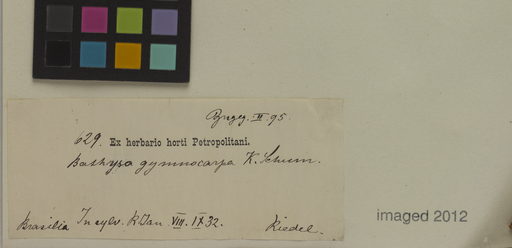 II. 95.
629. Ex herbario horti Petropolitani.
Bathysa gymnocarpa K. Schum.
Brasilia In sylv. R. Jan VIII. IX 32. Riedel.
imaged 2012